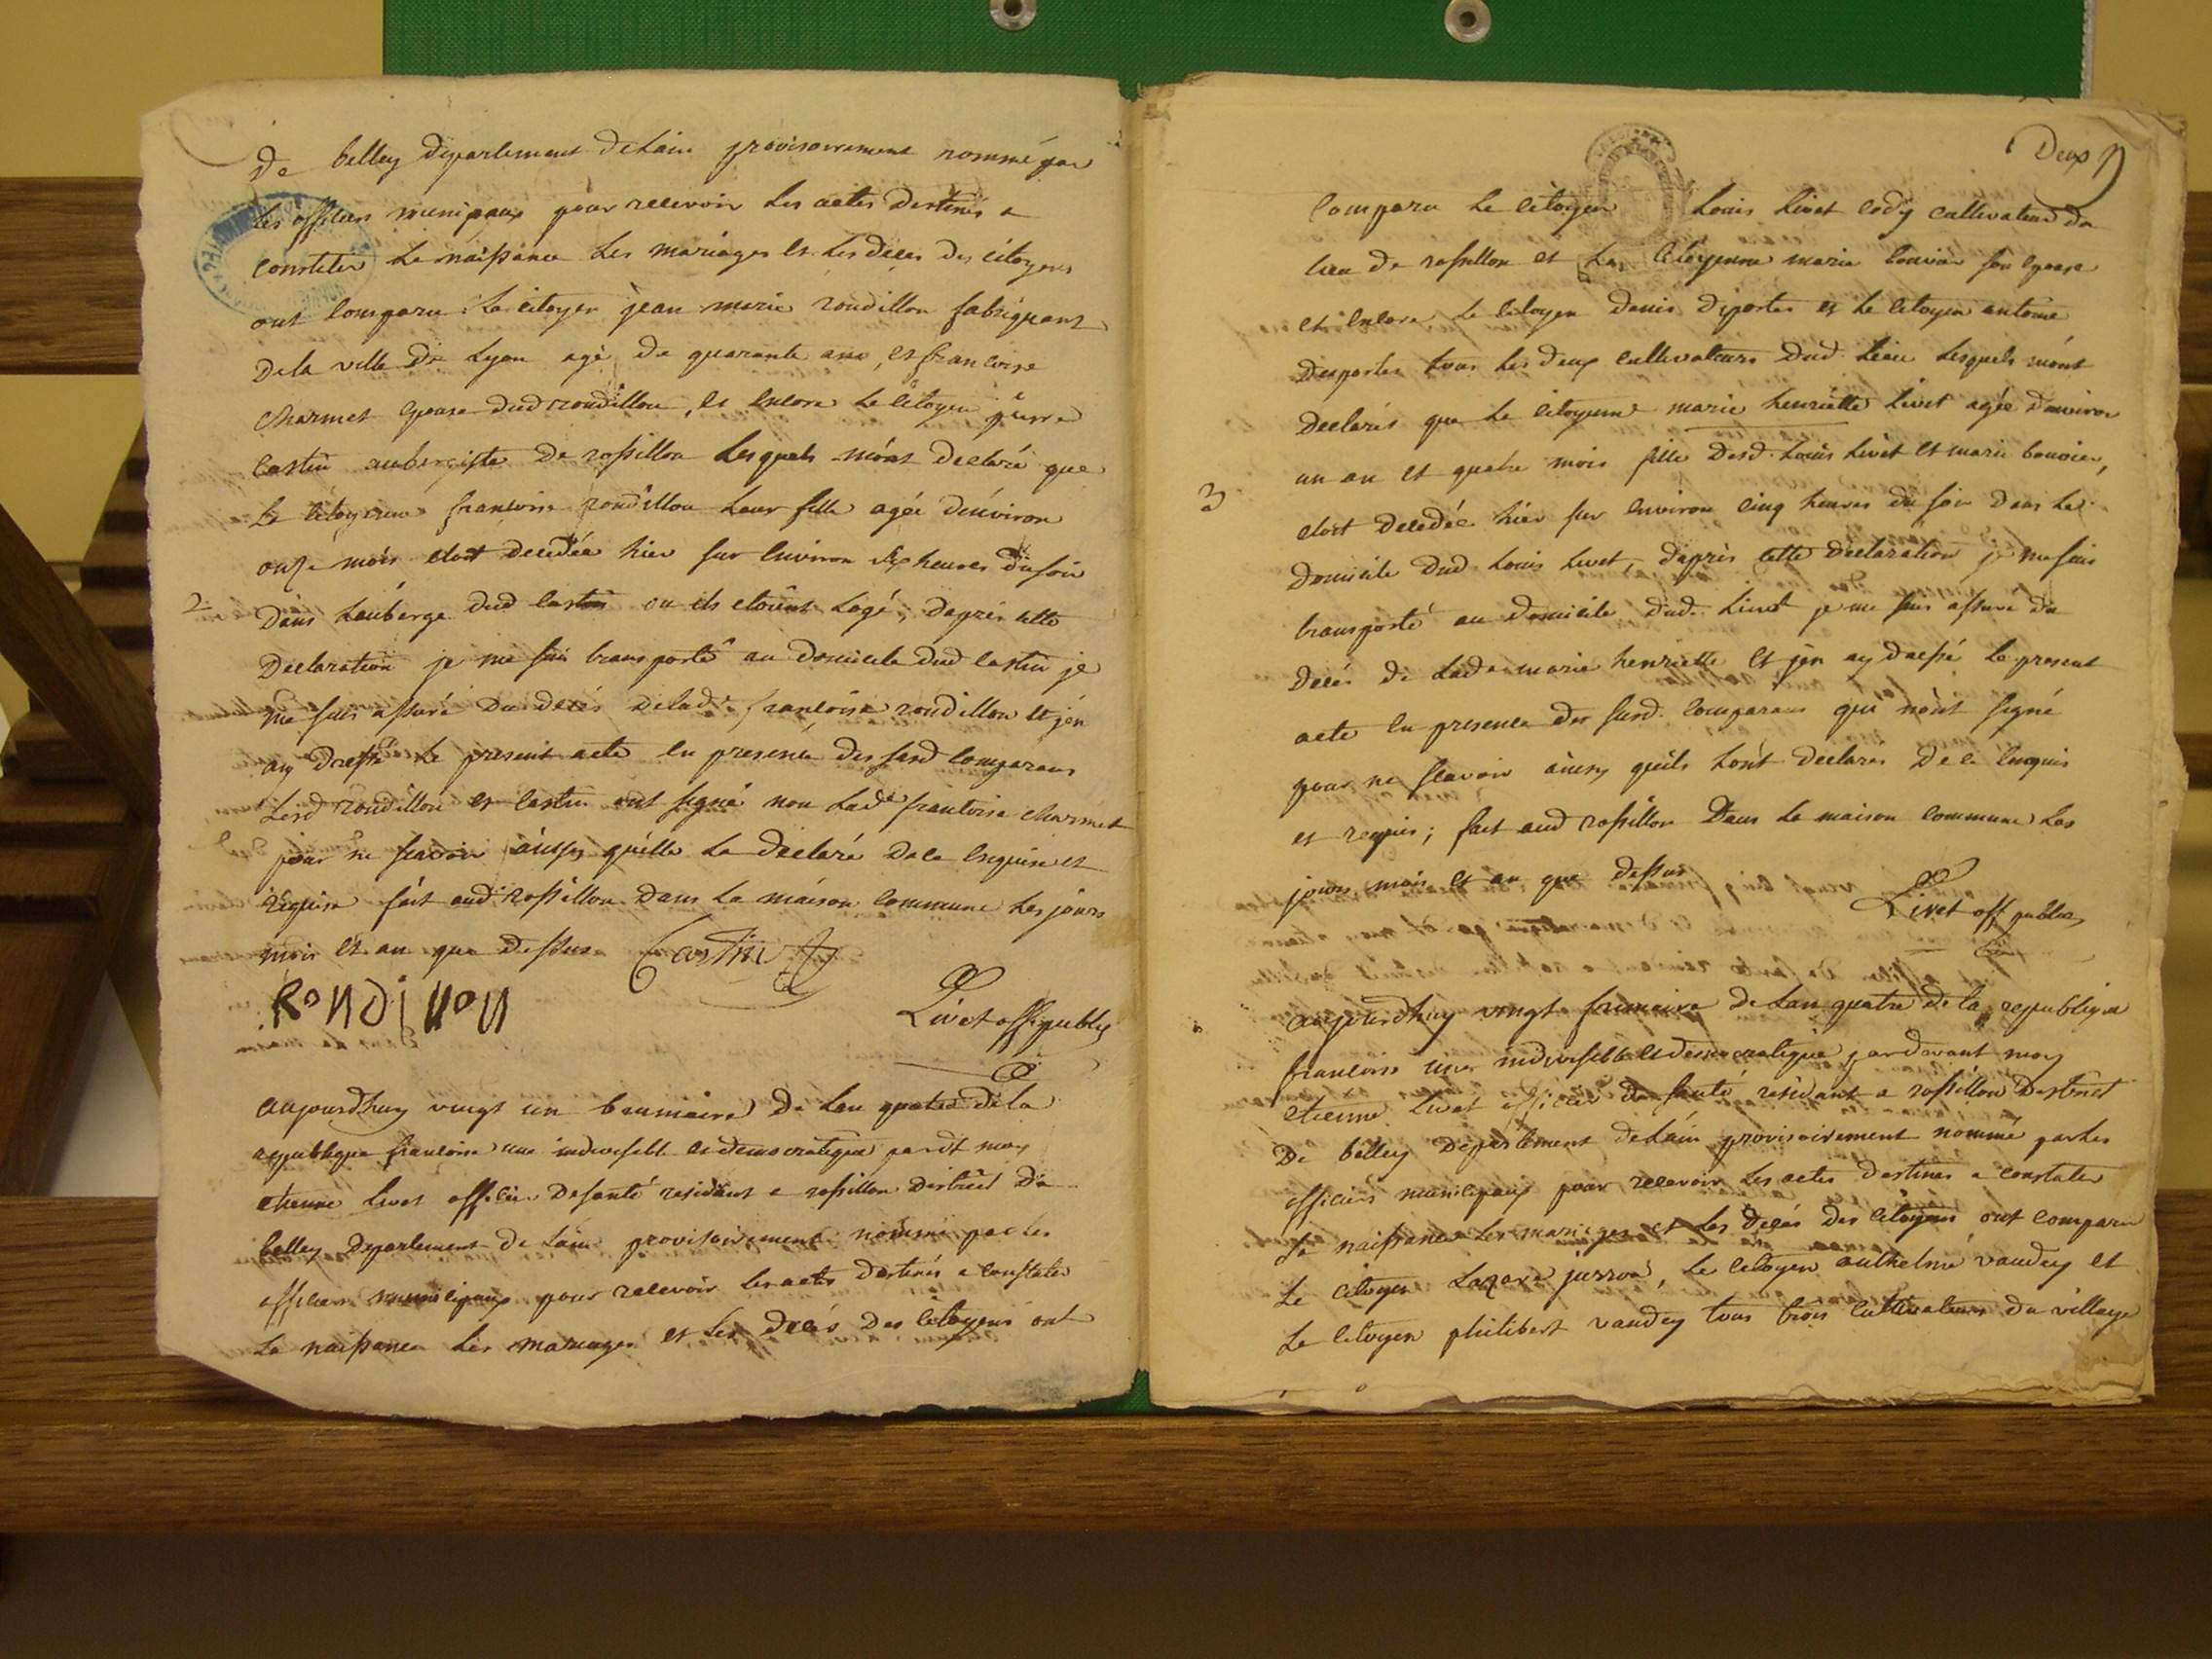 de belley departement de Lain provisoirement nommé par
les officiers municipaux pour recevoir les actes destinés a
constater la naissance les mariages et les deces des citoyens
ont comparu le citoyen jean marie rondillon fabriquant
de la ville de Lyon agé de quarante ans, et francoise
charmet epouse dud rondillon, et encore le citoyen pierre
castin aubergiste de rossillon lesquels mont declaré que
la citoyenne francoise rondillon leur fille agée denviron
onze mois etoit decedée hier sur environ six heures du soir
2
dans lauberge dud castin ou ils etoient logé, dapres cette
declaration je me suis transporté au domicile dud castin je
me suis assuré du decés de lade francoise rondillon et jen
ay dressé le present acte en presence des susd comparans
lesd rondillon et castin ont signé non lade francoise charmet
pour ne scavoir ainsy quelle la declaré de ce enquise et
requise fait aud rossillon dans la maison commune les jours
mois et an que dessus Castin
RONDiNON
Livet off public
aujourdhuy vingt un brumaire de lan quatre de la
republique francoise une indivisible et democratique pardt moy
etienne Livet officier de santé residant a rossillon district de
belley departement de Lain provisoirement nommé par les
officiers municipaux pour recevoir les actes destinés a constater
la naissance les mariages et les decés des citoyens ont
Deux
comparu le citoyen Louis Livet cultivateur du
lieu de rossillon et la citoyenne marie bouvier son epouse
et encore le citoyen denis deportes et le citoyen antoine
desportes tous les deux cultivateurs dud lieu lesquels mont
declarés que la citoyenne marie henriette Livet agée denviron
un an et quatre mois fille desd. Louis Livet et marie bouvier,
3
etoit decedée hier sur environ cinq heures du soir dans le
domicile dud. Louis Livet, dapres cette declaration je me suis
transporté au domicile dud. Livet je me suis assuré du
decés de lade marie henriette et jen ay dressé le present
acte en presence des susd. comparans qui nont signé
pour ne scavoir ainsy quils lont declarés de ce enquis
et requis; fait aud rossillon dans la maison commune les
jours mois et an que dessus
Livet off public
aujourdhuy vingt frimaire de lan quatre de la republique
francoise une indivisible et democratique pardevant moy
etienne Livet officier de santé residant a rossillon district
de belley departement de Lain provisoirement nommé par les
officiers municipaux pour recevoir les actes destinés a constater
la naissance les mariages et les decés des citoyens ont comparu
le citoyen Lazare, le citoyen anthelme vaudey et
le citoyen philibert vaudey tous trois cultivateurs du village